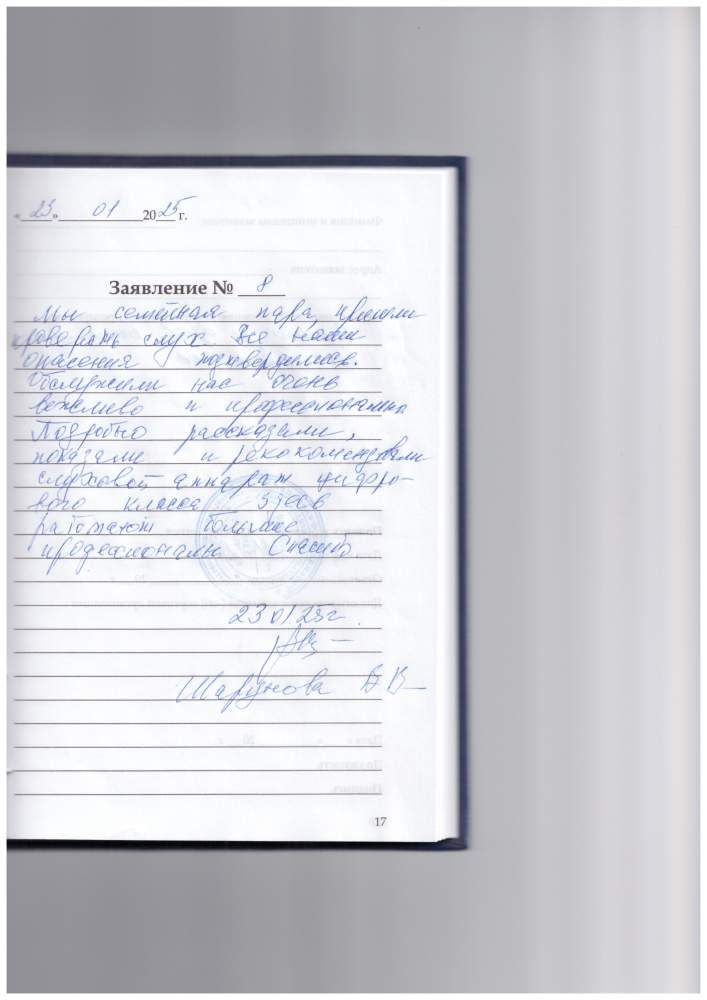 «23» 01 2025 г.
Заявление № 8
Мы семейная пара, пришли
проверить слух. Все наши
опасения подтвердились.
Обслужили нас очень
вежливо и профессионально
Подробно рассказали,
показали и рекокомендовали
слуховой аппарат цифро-
вого класса Здесь
работают большие
профессионалы Спасибо
23 01 25г.
Шарунова В В
17